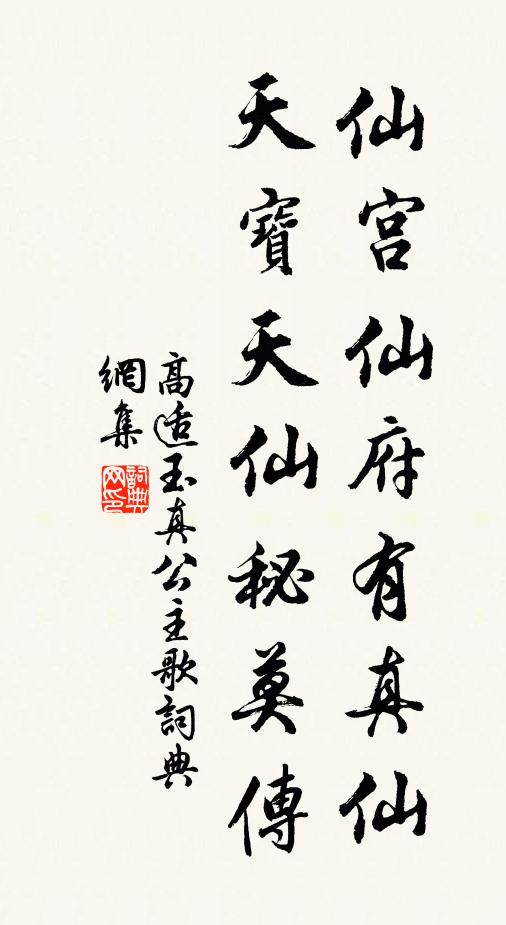 仙宮仙府有真仙
天寶天仙秘莫傳
高适玉真公主歌詞典
網集
詞典
网印